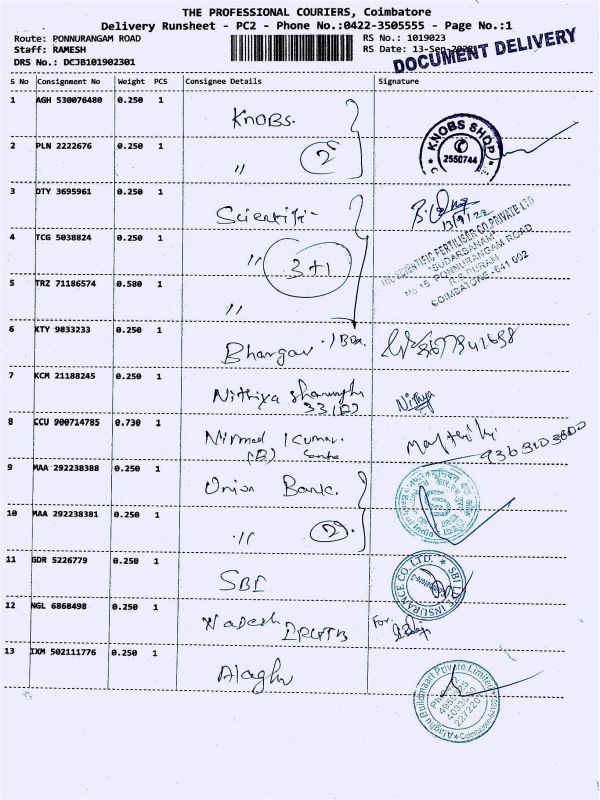 THE PROFESSIONAL COURIERS, Coimbatore
Delivery Runsheet - PC2 - Phone No.:0422-3505555 - Page No.:1
Route: PONNURANGAM ROAD
RS No.: 1019023
Staff: RAMESH
RS Date: 13-Sep-2022
DRS No.: DCJB101902301
DOCUMENT DELIVERY
S No Consignment No Weight PCS Consignee Details Signature
1 AGH 530076480 0.250 1 KNOBS.
2 PLN 2222676 0.250 1 " 2
KNOBS SHOP
2550744
3 DTY 3695961 0.250 1 Scientifi-
13/9/22
4 TCG 5038824 0.250 1 " 3+1
SCIENTIFIC FERTILISER CO PRIVATE LTD
"SUDARSANAM"
No 15, PONNURANGAM ROAD
R.S. PURAM
COIMBATORE - 641 002
5 TRZ 71186574 0.580 1 "
1 Box.
6 KTY 9833233 0.250 1 Bhargav
7 KCM 21188245 0.250 1 Nithiya
Nithya
8 CCU 900714785 0.730 1 Nirmal Kumar.
(B)
9363203600
9 MAA 292238388 0.250 1 Union Bank.
10 MAA 292238381 0.250 1 " 2
11 GDR 5226779 0.250 1 SBI
SBI LIFE INSURANCE CO. LTD.
12 NGL 6868498 0.250 1
For
13 IXM 502111776 0.250 1 Alaghu
Alaghu Buildmaart Private Limited
Coimbatore